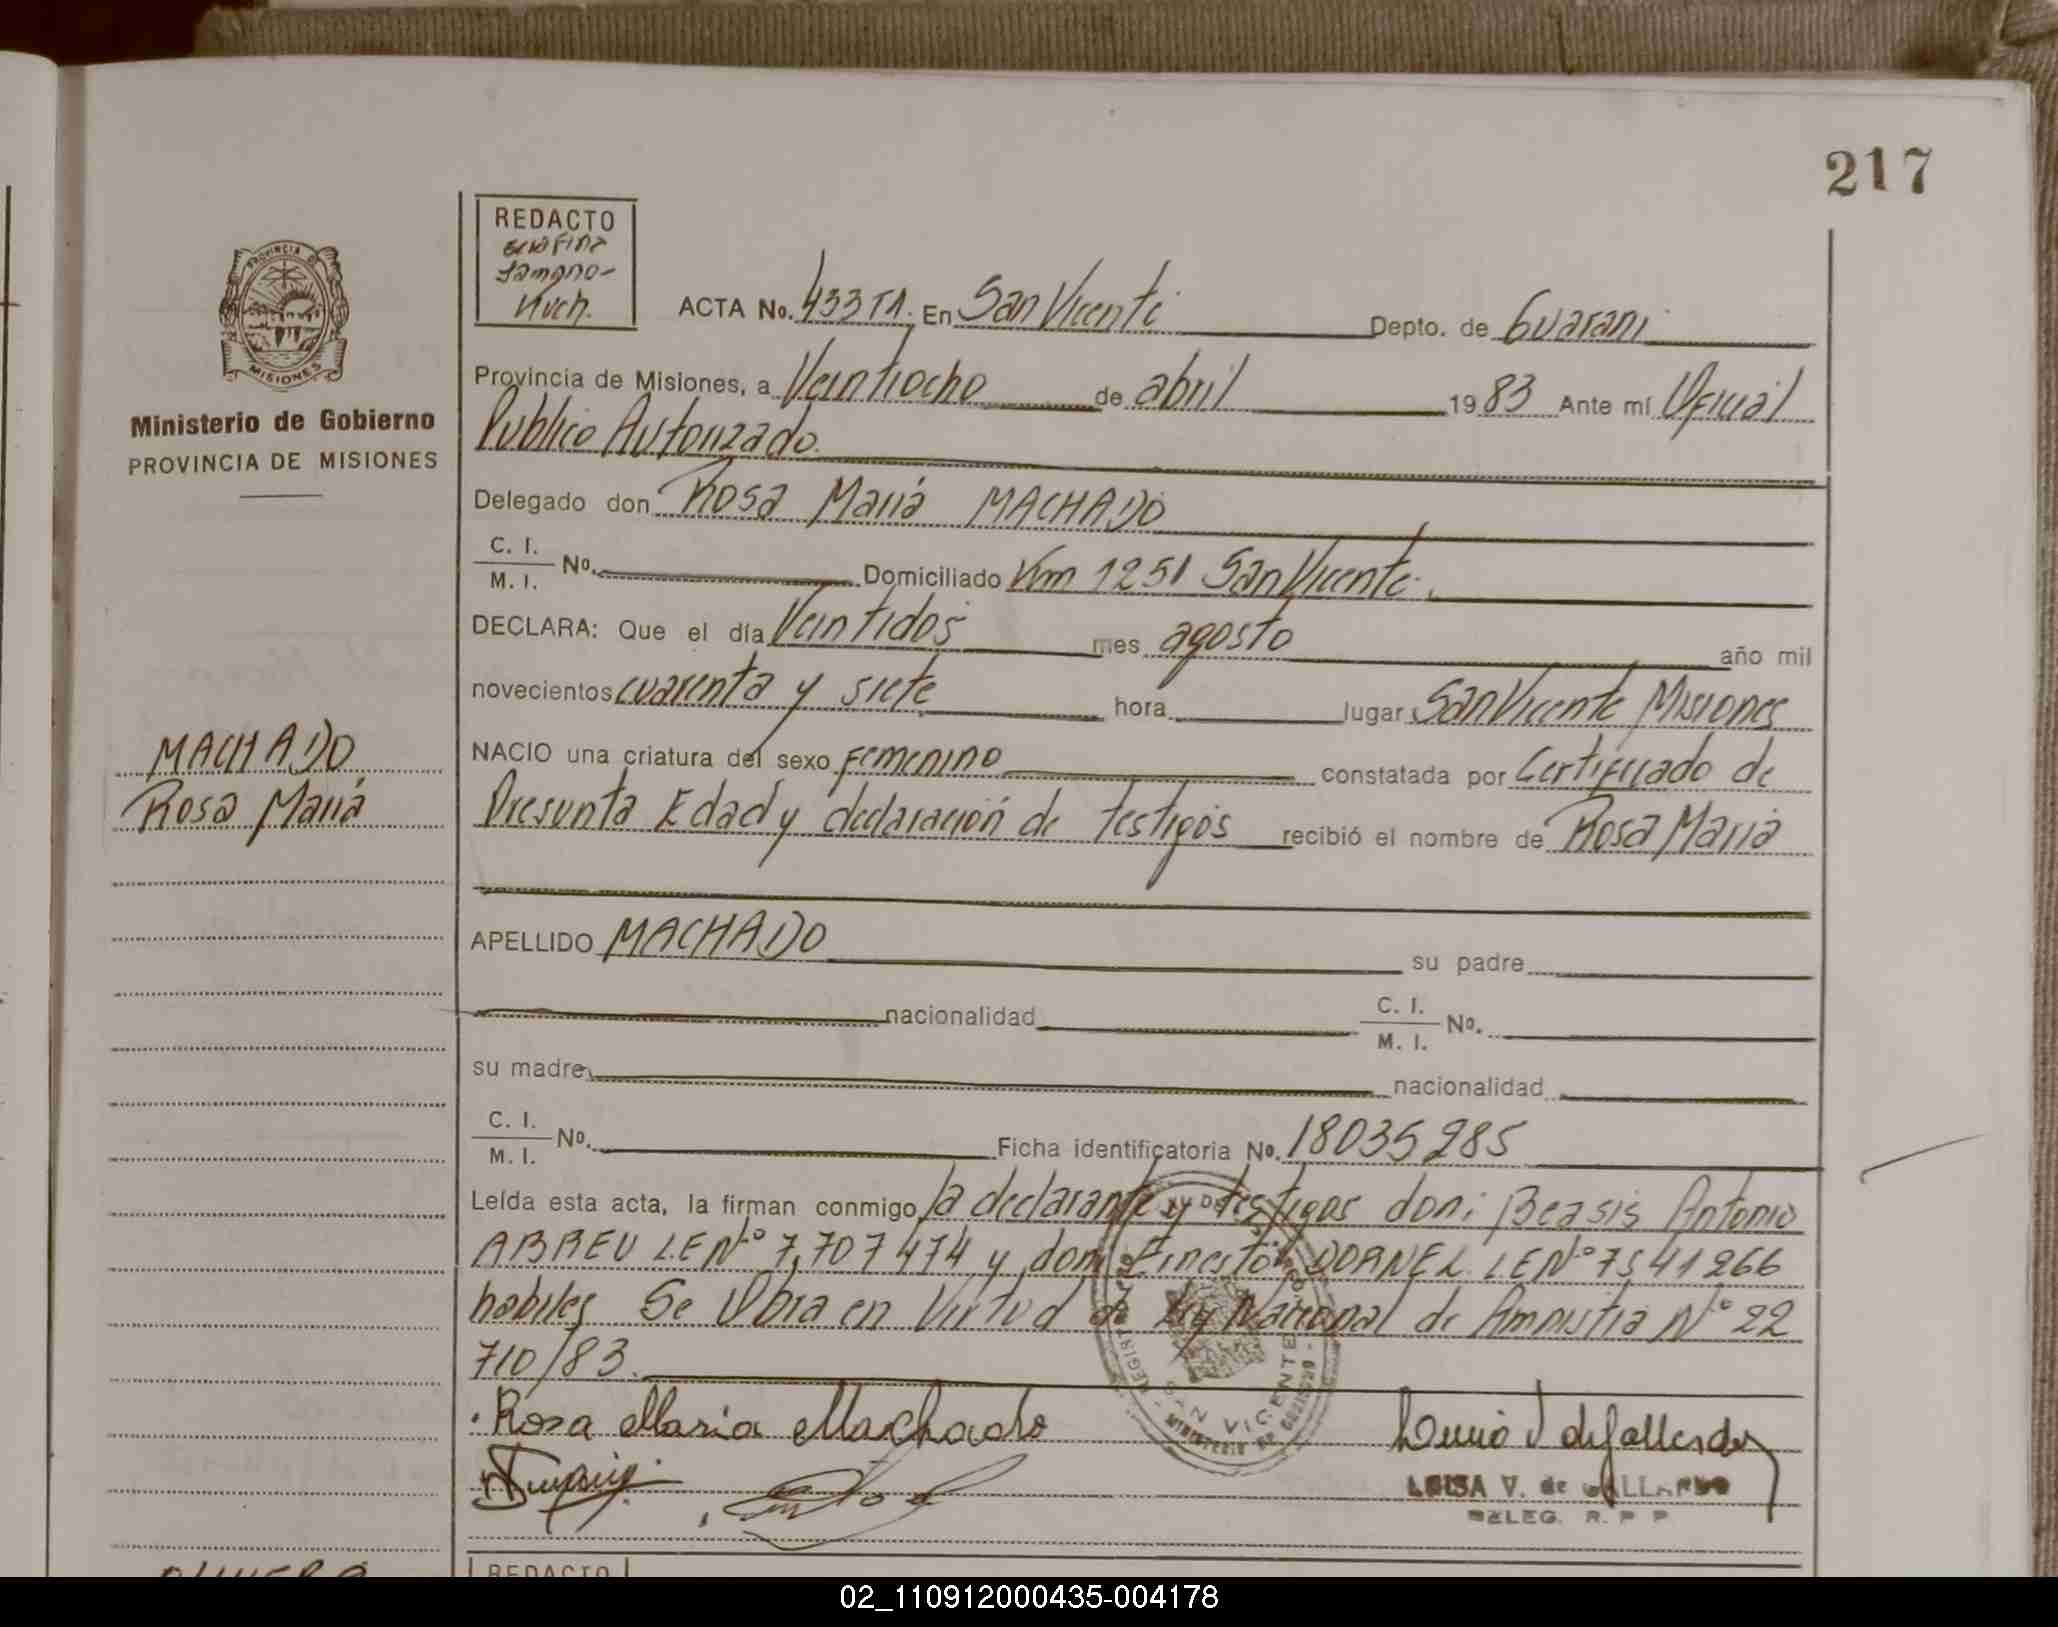 217
REDACTO
ACTA No. 433 TA. En San Vicente Depto. de Guarani
PROVINCIA DE
MISIONES
Provincia de Misiones, a Veintiocho de abril 1983 Ante mí Oficial
Ministerio de Gobierno
Publico Autorizado.
PROVINCIA DE MISIONES
Delegado don Rosa María MACHADO
C. I.
M. I. No. Domiciliado Km 1251 San Vicente.
DECLARA: Que el día Veintidos mes agosto año mil
novecientos cuarenta y siete hora lugar San Vicente Misiones
MACHADO
Rosa María
NACIO una criatura del sexo Femenino constatada por Certificado de
Presunta Edad y declaración de testigos recibió el nombre de Rosa María
APELLIDO MACHADO su padre
nacionalidad C. I.
M. I. No.
su madre nacionalidad
C. I.
M. I. No. Ficha identificatoria No. 18035285
Leída esta acta, la firman conmigo la declarante y testigos don: Beasis Antonio
ABREU L.E Nº 7,707474 y don Ernesto DORNEL LE Nº 7541266
habiles Se Obra en Virtud de Ley Nacional de Amnistia Nº 22
710/83.
Rosa Maria Machado
SAN VICENTE
LUISA V. de GALLARDO
DELEG. R. P P
REDACTO
02_110912000435-004178